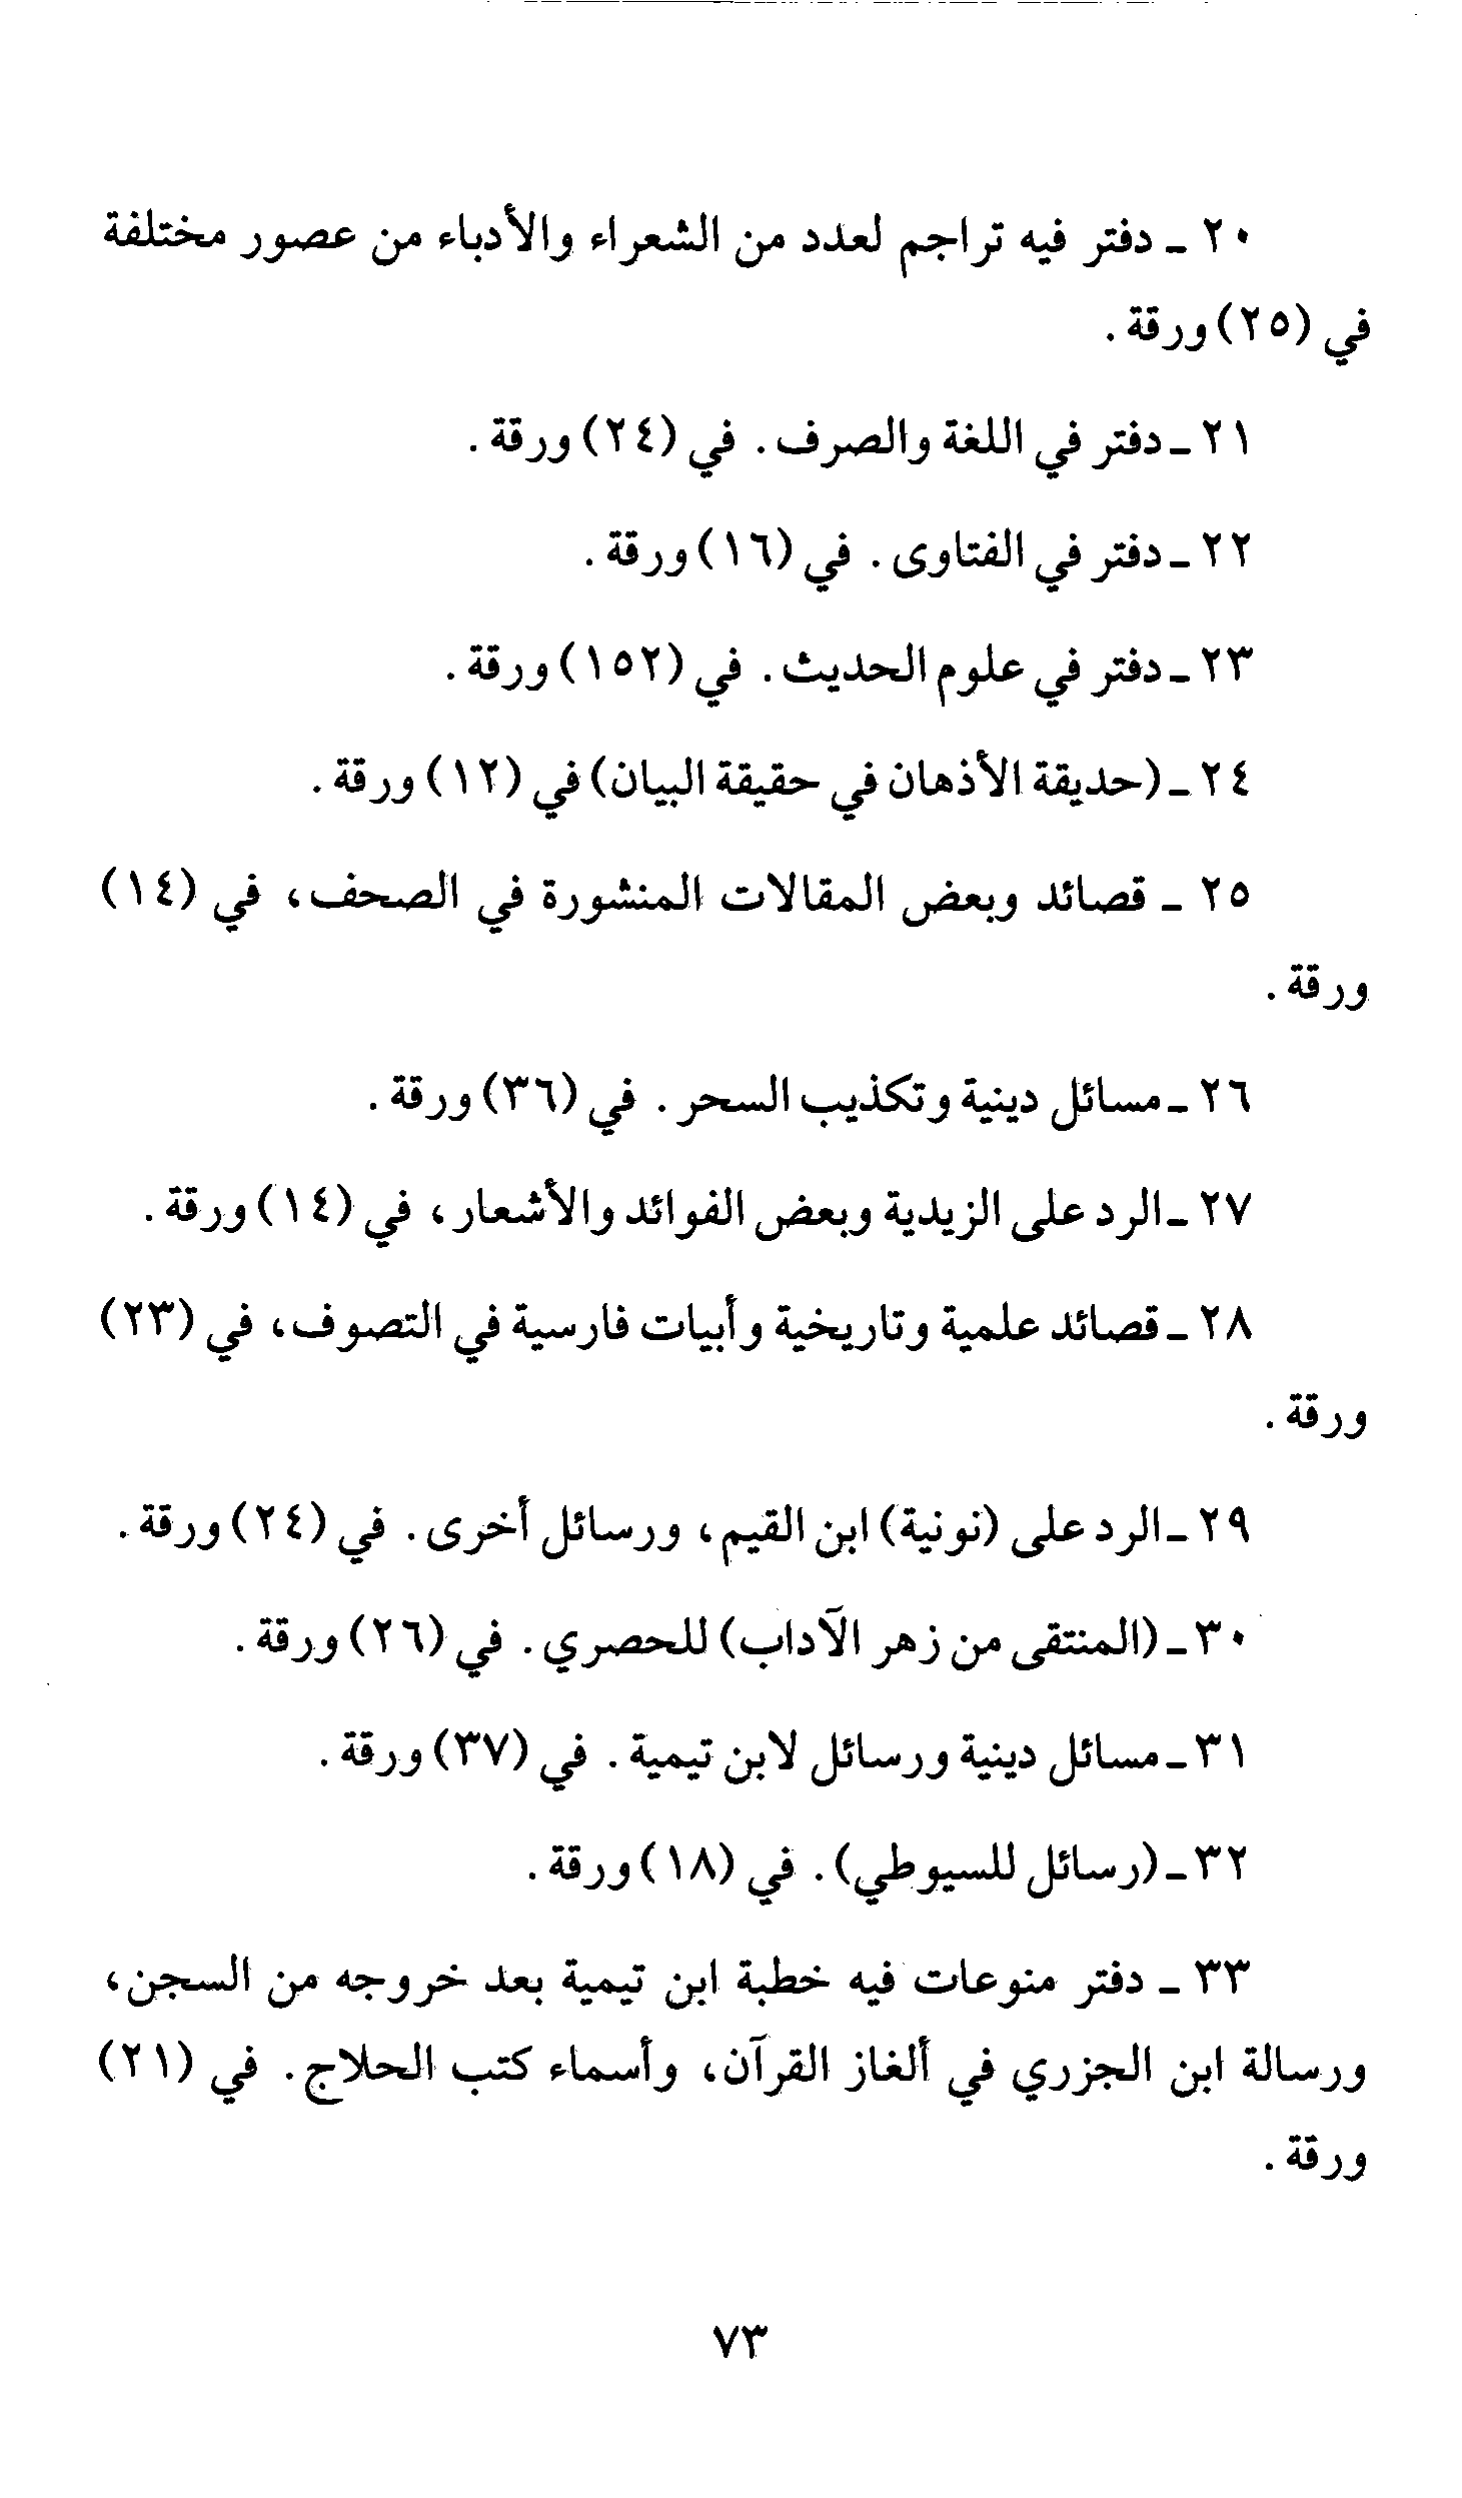 ٢٠ ـ دفتر فيه تراجم لعدد من الشعراء والأدباء من عصور مختلفة
في (٢٥) ورقة .
٢١ ـ دفتر في اللغة والصرف . في (٢٤) ورقة .
٢٢ ـ دفتر في الفتاوى . في (١٦) ورقة .
٢٣ ـ دفتر في علوم الحديث . في (١٥٢) ورقة .
٢٤ ـ (حديقة الأذهان في حقيقة البيان) في (١٢) ورقة .
٢٥ ـ قصائد وبعض المقالات المنشورة في الصحف، في (١٤)
ورقة .
٢٦ ـ مسائل دينية وتكذيب السحر . في (٣٦) ورقة .
٢٧ ـ الرد على الزيدية وبعض الفوائد والأشعار، في (١٤) ورقة .
٢٨ ـ قصائد علمية وتاريخية وأبيات فارسية في التصوف، في (٢٣)
ورقة .
٢٩ ـ الرد على (نونية) ابن القيم، ورسائل أخرى . في (٢٤) ورقة .
٣٠ ـ (المنتقى من زهر الآداب) للحصري . في (٢٦) ورقة .
٣١ ـ مسائل دينية ورسائل لابن تيمية . في (٣٧) ورقة .
٣٢ ـ (رسائل للسيوطي) . في (١٨) ورقة .
٣٣ ـ دفتر منوعات فيه خطبة ابن تيمية بعد خروجه من السجن،
ورسالة ابن الجزري في ألغاز القرآن، وأسماء كتب الحلاج . في (٢١)
ورقة .
٧٣